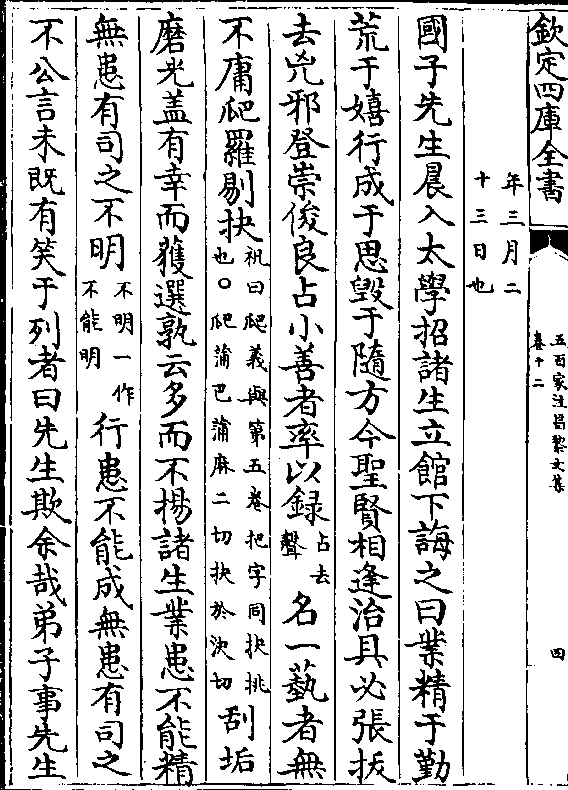 欽定四庫全書
五百家注昌黎文集
卷十二
四
年三月二
十三日也
國子先生晨入太學招諸生立館下誨之曰業精于勤
荒于嬉行成于思毁于隨方今聖賢相逢治具必張拔
去兇邪登崇俊良占小善者率以録占去聲名一藝者無
不庸爬羅剔抉祝曰爬義與第五卷把字同抉挑也○爬蒲巴蒲麻二切抉於决切刮垢
磨光盖有幸而獲選孰云多而不揚諸生業患不能精
無患有司之不明不明一作不能明行患不能成無患有司之
不公言未既有笑于列者曰先生欺余哉弟子事先生